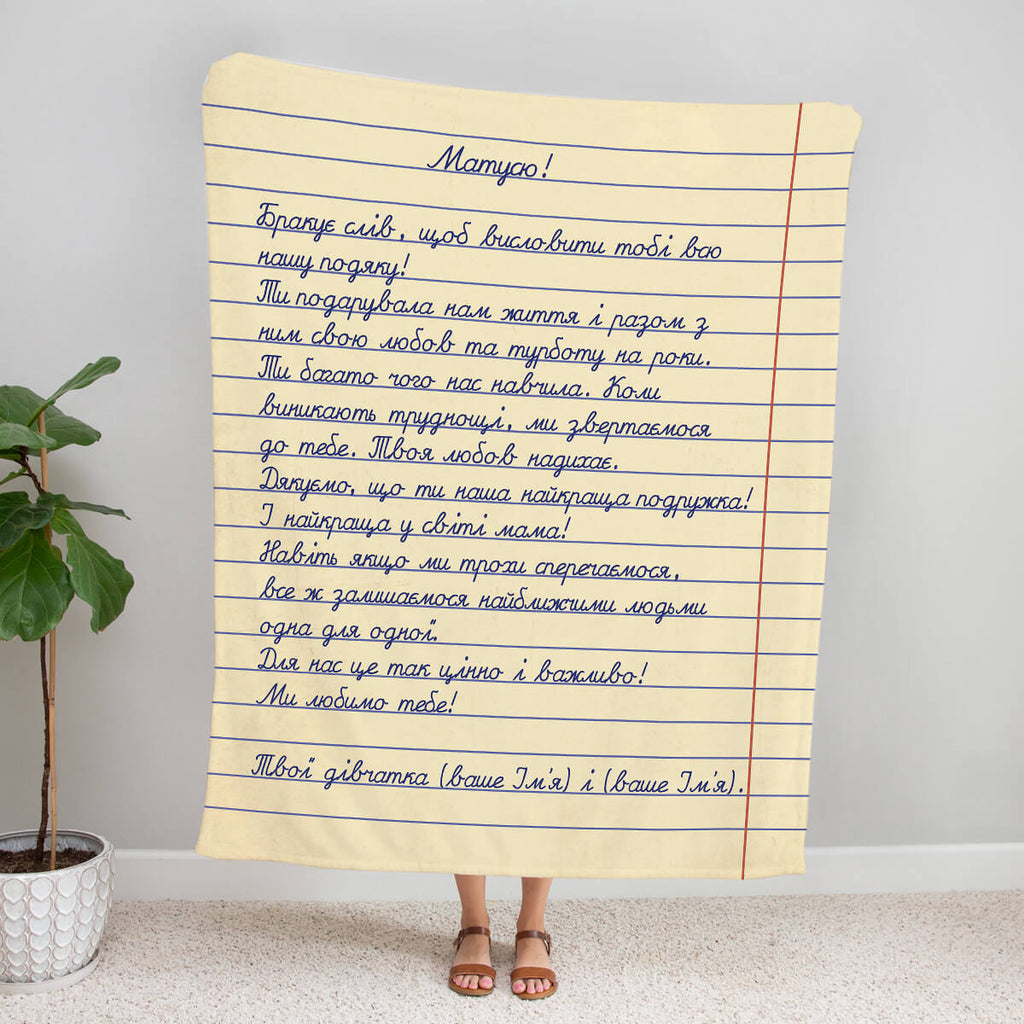 Матусю!
Бракує слів, щоб висловити тобі всю
нашу подяку!
Ти подарувала нам життя і разом з
ним свою любов та турботу на роки.
Ти багато чого нас навчила. Коли
виникають труднощі, ми звертаємося
до тебе. Твоя любов надихає.
Дякуємо, що ти наша найкраща подружка!
І найкраща у світі мама!
Навіть якщо ми трохи сперечаємося,
все ж залишаємося найближчими людьми
одна для одної.
Для нас це так цінно і важливо!
Ми любимо тебе!
Твої дівчатка (ваше Ім'я) і (ваше Ім'я).